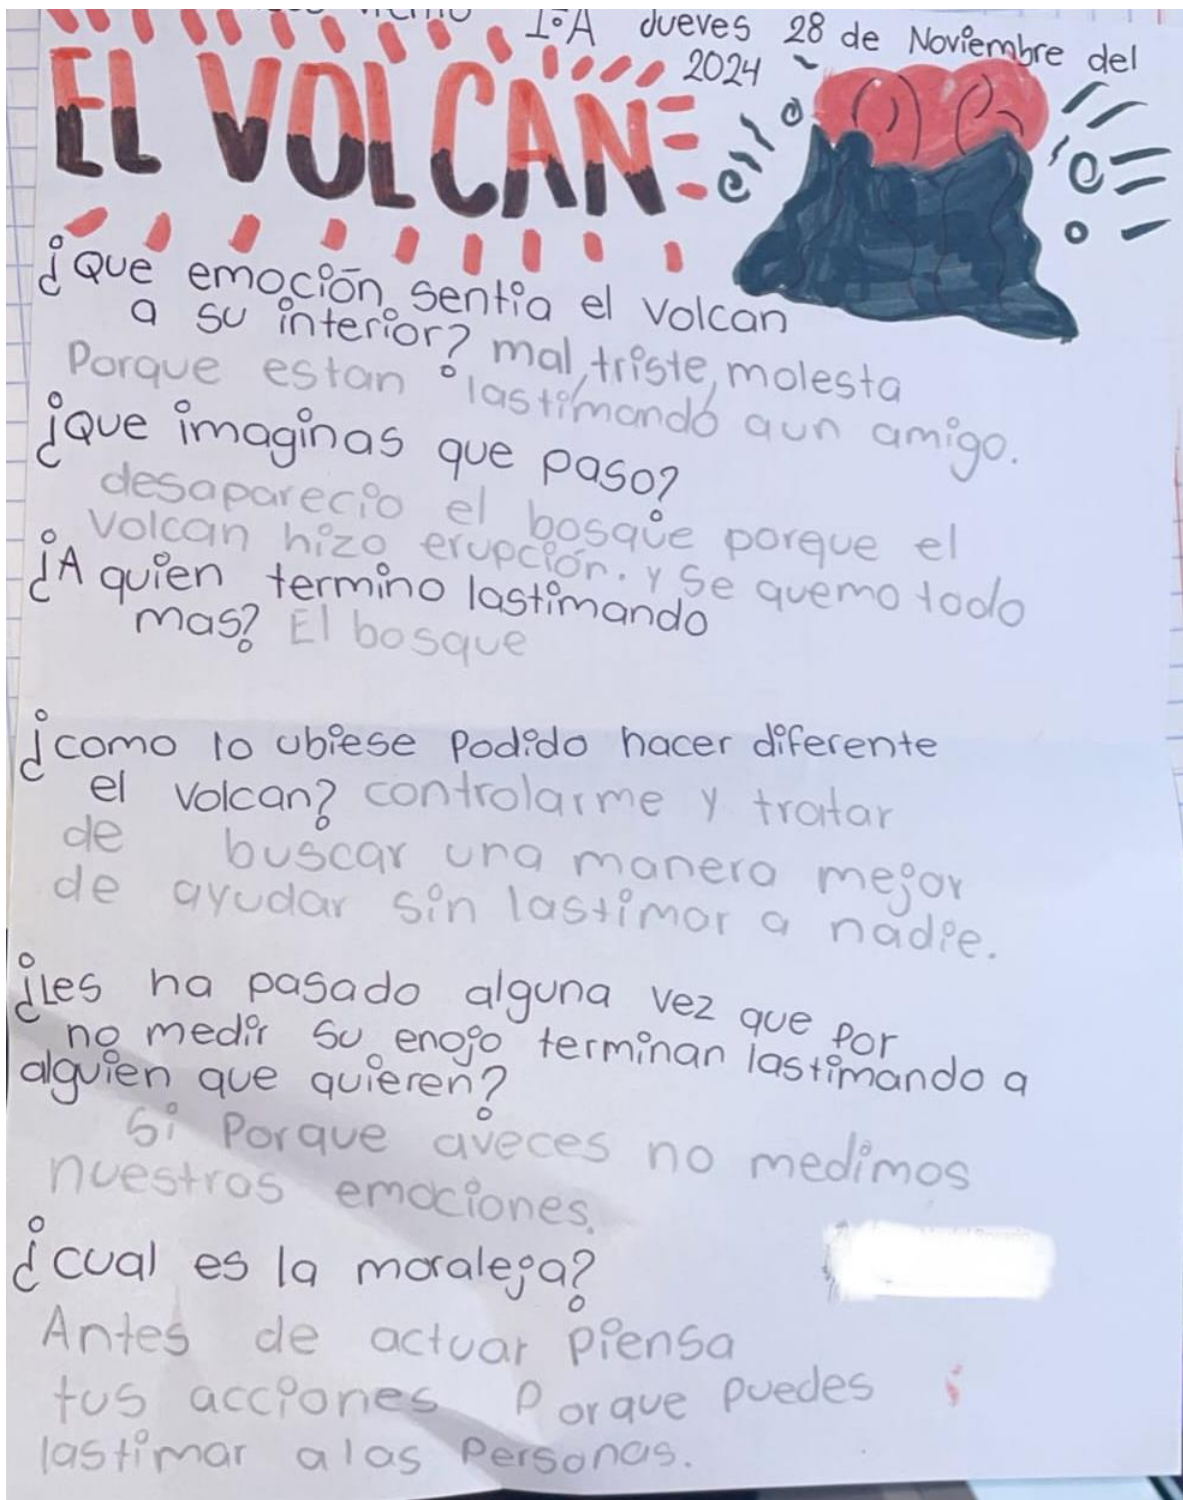 1°A Jueves 28 de Noviembre del
2024
EL VOLCAN
¿Que emoción sentia el volcan
a su interior? mal, triste, molesta
Porque estan lastimando aun amigo.
¿Que imaginas que paso?
desaparecio el bosque porque el
volcan hizo erupción. y se quemo todo
¿A quien termino lastimando
mas? El bosque
¿como lo ubiese Podido hacer diferente
el volcan? controlarme y tratar
de buscar una manera mejor
de ayudar sin lastimar a nadie.
¿Les ha pasado alguna vez que por
no medir su enojo terminan lastimando a
alguien que quieren?
Si Porque aveces no medimos
nuestras emociones.
¿cual es la moraleja?
Antes de actuar piensa
tus acciones Porque puedes
lastimar alas Personas.